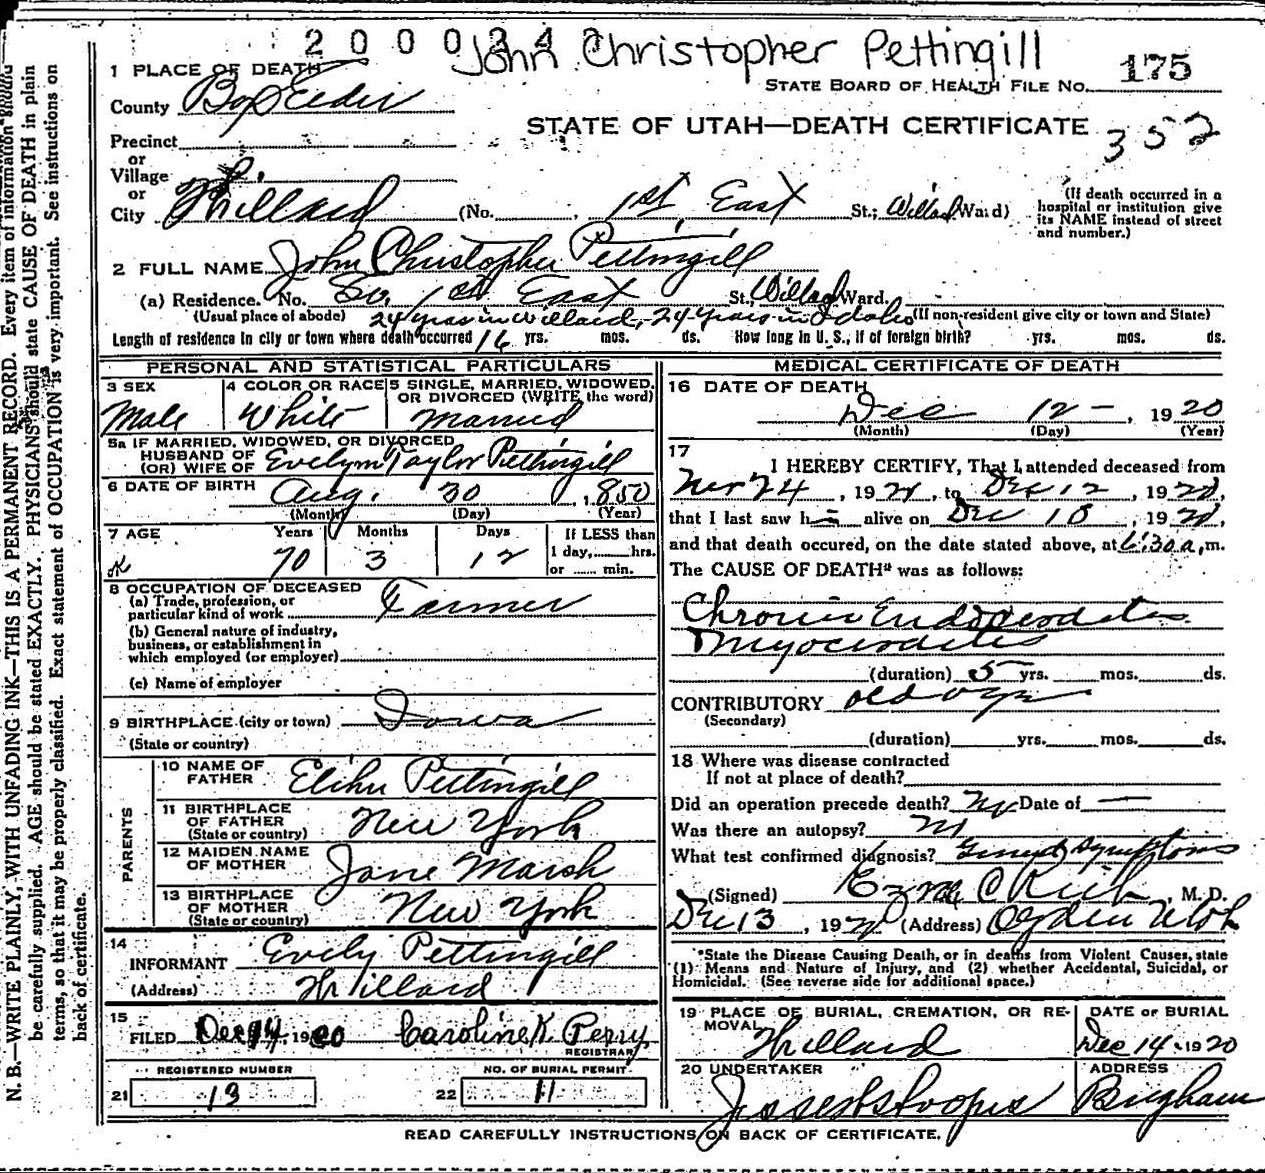 2 0 0 0 3 4
John Christopher Pettingill
1 PLACE OF DEATH
STATE BOARD OF HEALTH FILE No. 175
County Box Elder
STATE OF UTAH—DEATH CERTIFICATE 352
Precinct
or
Village
or
City Willard (No. , 1st East St.; Willard Ward)
(If death occurred in a hospital or institution give its NAME instead of street and number.)
2 FULL NAME John Christopher Pettingill
(a) Residence. No. So. 1st East St., Willard Ward.
(Usual place of abode) 24 years in Willard, 24 years in Idaho (If non-resident give city or town and State)
Length of residence in city or town where death occurred 16 yrs. mos. ds. How long in U. S., if of foreign birth? yrs. mos. ds.
PERSONAL AND STATISTICAL PARTICULARS
3 SEX
Male
4 COLOR OR RACE
White
5 SINGLE, MARRIED, WIDOWED,
OR DIVORCED (WRITE the word)
Married
5a IF MARRIED, WIDOWED, OR DIVORCED
HUSBAND OF
(OR) WIFE OF Evelyn Taylor Pettingill
6 DATE OF BIRTH Aug. 30, 1850
(Month) (Day) (Year)
7 AGE Years Months Days
70 3 12
If LESS than
1 day, hrs.
or min.
8 OCCUPATION OF DECEASED
(a) Trade, profession, or
particular kind of work Farmer
(b) General nature of industry,
business, or establishment in
which employed (or employer)
(c) Name of employer
9 BIRTHPLACE (city or town) Iowa
(State or country)
PARENTS
10 NAME OF
FATHER Elihu Pettingill
11 BIRTHPLACE
OF FATHER
(State or country) New York
12 MAIDEN NAME
OF MOTHER Jane Marsh
13 BIRTHPLACE
OF MOTHER
(State or country) New York
14
INFORMANT Evelyn Pettingill
(Address) Willard
15
FILED Dec 14, 1920 Caroline K. Perry
REGISTRAR
REGISTERED NUMBER
21 13
NO. OF BURIAL PERMIT
22 11
MEDICAL CERTIFICATE OF DEATH
16 DATE OF DEATH
Dec 12 -, 1920
(Month) (Day) (Year)
17
I HEREBY CERTIFY, That I attended deceased from
Nov 24, 1920, to Dec 12, 1920,
that I last saw him alive on Dec 10, 1920,
and that death occured, on the date stated above, at 6:30 a, m.
The CAUSE OF DEATH* was as follows:
Chronic Endocardites
Myocardites
(duration) 5 yrs. mos. ds.
CONTRIBUTORY old age
(Secondary)
(duration) yrs. mos. ds.
18 Where was disease contracted
If not at place of death?
Did an operation precede death? No Date of —
Was there an autopsy? No
What test confirmed diagnosis? Symptoms
(Signed) Ezra C Rich, M. D.
Dec 13, 1920 (Address) Ogden Utah
*State the Disease Causing Death, or in deaths from Violent Causes, state
(1) Means and Nature of Injury, and (2) whether Accidental, Suicidal, or
Homicidal. (See reverse side for additional space.)
19 PLACE OF BURIAL, CREMATION, OR RE-
MOVAL
Willard
DATE OF BURIAL
Dec 14 - 1920
20 UNDERTAKER
ADDRESS
Brigham
READ CAREFULLY INSTRUCTIONS ON BACK OF CERTIFICATE.
N. B.—WRITE PLAINLY, WITH UNFADING INK—THIS IS A PERMANENT RECORD. Every item of information should
be carefully supplied. AGE should be stated EXACTLY. PHYSICIANS should state CAUSE OF DEATH in plain
terms, so that it may be properly classified. Exact statement of OCCUPATION is very important. See instructions on
back of certificate.